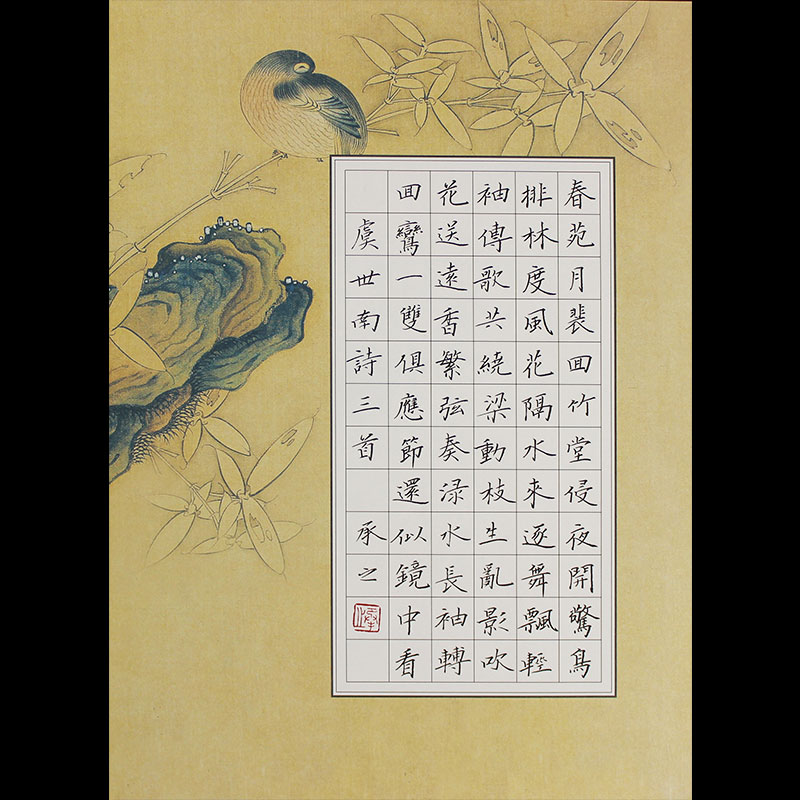 春苑月裴回竹堂侵夜開驚鳥
排林度風花隔水來逐舞飄輕
袖傳歌共繞梁動枝生亂影吹
花送遠香繁弦奏淥水長袖轉
回鸞一雙俱應節還似鏡中看
虞世南詩三首 承之